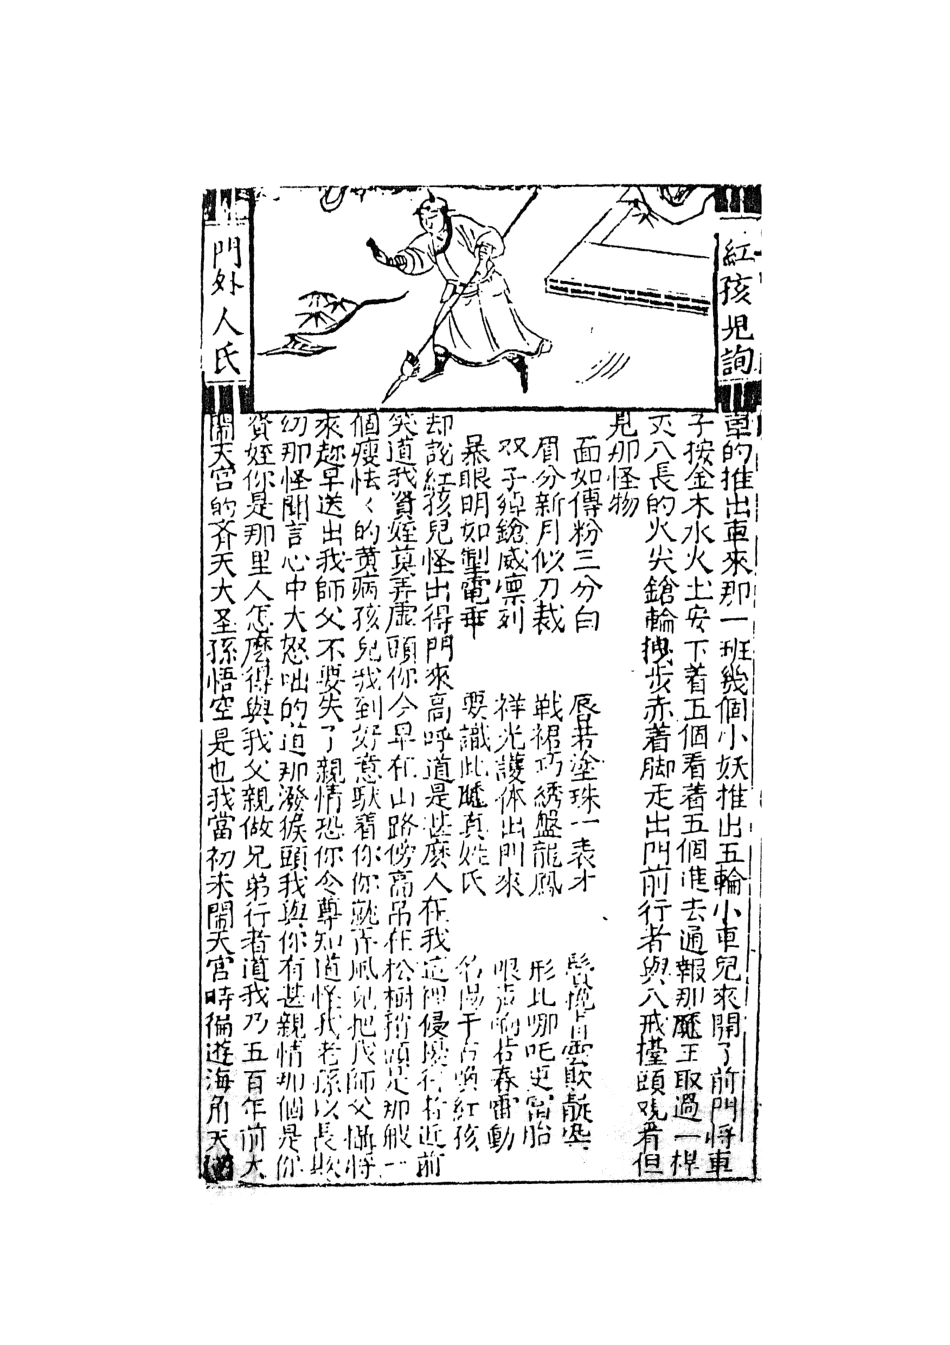 紅孩児詢
門外人氏
車的推出車來那一班幾個小妖推出五輪小車兒來開了前門將車
子按金木水火土安下着五個看着五個進去通報那魔王取過一桿
丈八長的火尖鎗輪拽步赤着脚走出門前行者與八戒擡頭观看但
見那怪物
面如傅粉三分白 唇若塗珠一表才
眉分新月似刀裁 戦裙巧綉盤龍鳳 形比哪吒更富胎
双手綽鎗威凛列 祥光護体出門來 春雷動
暴眼明如掣電乖 要識此魔真姓氏 名揚千古喚紅孩
却說紅孩兒怪出得門來高呼道是甚麽人在我這門侵擾行者近前
笑道我賢姪莫弄虚頭你今早在山路傍高吊在松樹稍頭是那般一
個瘦怯々的黄病孩兒我到好意馱着你你就弄風兒把我師父攝將
來趂早送出我師父不要失了親情恐你令尊知道怪我老孫以長欺
幼那怪聞言心中大怒咄的道那潑猴頭我與你有甚親情那個是你
賢姪你是那里人怎麽得與我父親做兄弟行者道我乃五百年前大
閙天宫的斉天大圣孫悟空是也我當初未閙天宫時徧遊海角天